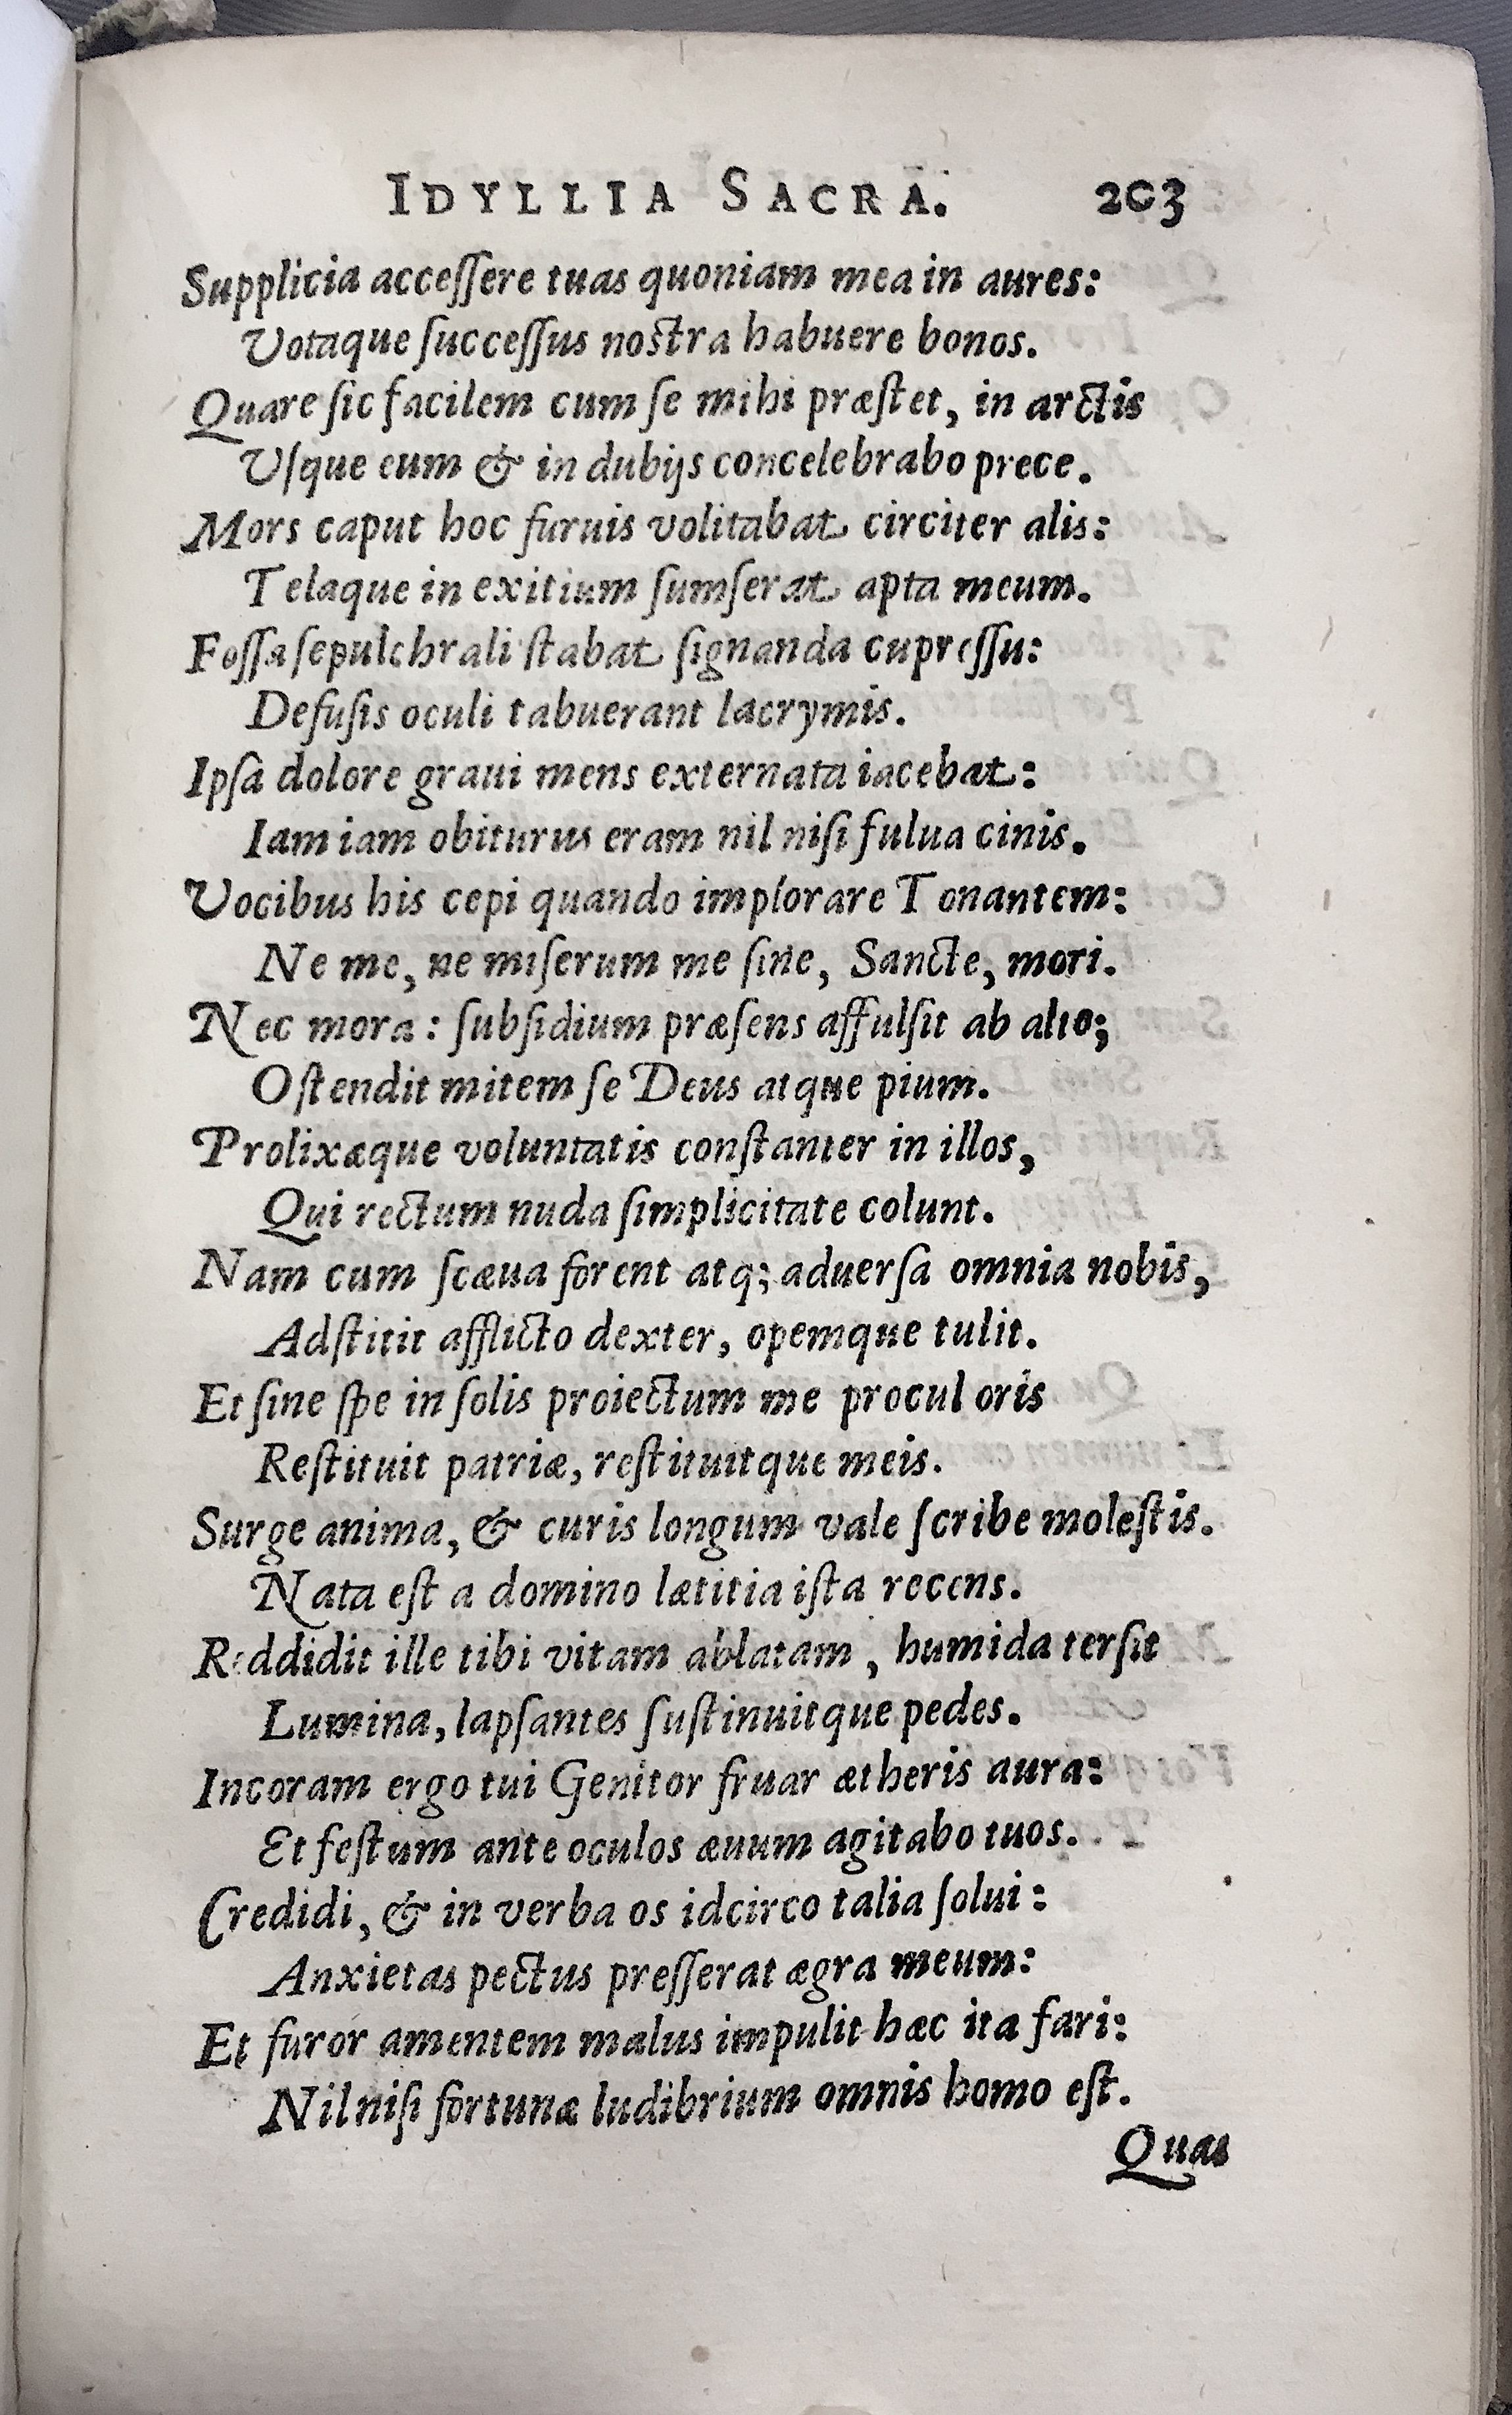 IDYLLIA SACRA. 203
Supplicia acceſſere tuas quoniam mea in aures:
Votaque ſucceſſus noſtra habuere bonos.
Quare ſic facilem cum ſe mihi præſtet, in arctis
Vſque eum & in dubijs concelebrabo prece.
Mors caput hoc furuis volitabat circiter alis:
Telaque in exitium ſumſerat apta meum.
Foſſa ſepulchrali ſtabat ſignanda cupreſſu:
Defuſis oculi tabuerant lacrymis.
Ipſa dolore graui mens externata iacebat:
Iam iam obiturus eram nil niſi fulua cinis.
Vocibus his cepi quando implorare Tonantem:
Ne me, ne miſerum me ſine, Sancte, mori.
Nec mora: ſubſidium præſens affulſit ab alto;
Oſtendit mitem ſe Deus atque pium.
Prolixæque voluntatis conſtanter in illos,
Qui rectum nuda ſimplicitate colunt.
Nam cum ſcæua forent atq; aduerſa omnia nobis,
Adſtitit afflicto dexter, opemque tulit.
Et ſine ſpe in ſolis proiectum me procul oris
Reſtituit patriæ, reſtituitque meis.
Surge anima, & curis longum vale ſcribe moleſtis.
Nata eſt a domino lætitia iſta recens.
Reddidit ille tibi vitam ablatam, humida terſit
Lumina, lapſantes ſuſtinuitque pedes.
Incoram ergo tui Genitor fruar ætheris aura:
Et feſtum ante oculos æuum agitabo tuos.
Credidi, & in verba os idcirco talia ſolui:
Anxietas pectus preſſerat ægra meum:
Et furor amentem malus impulit hæc ita fari:
Nil niſi fortunæ ludibrium omnis homo eſt.
Quas